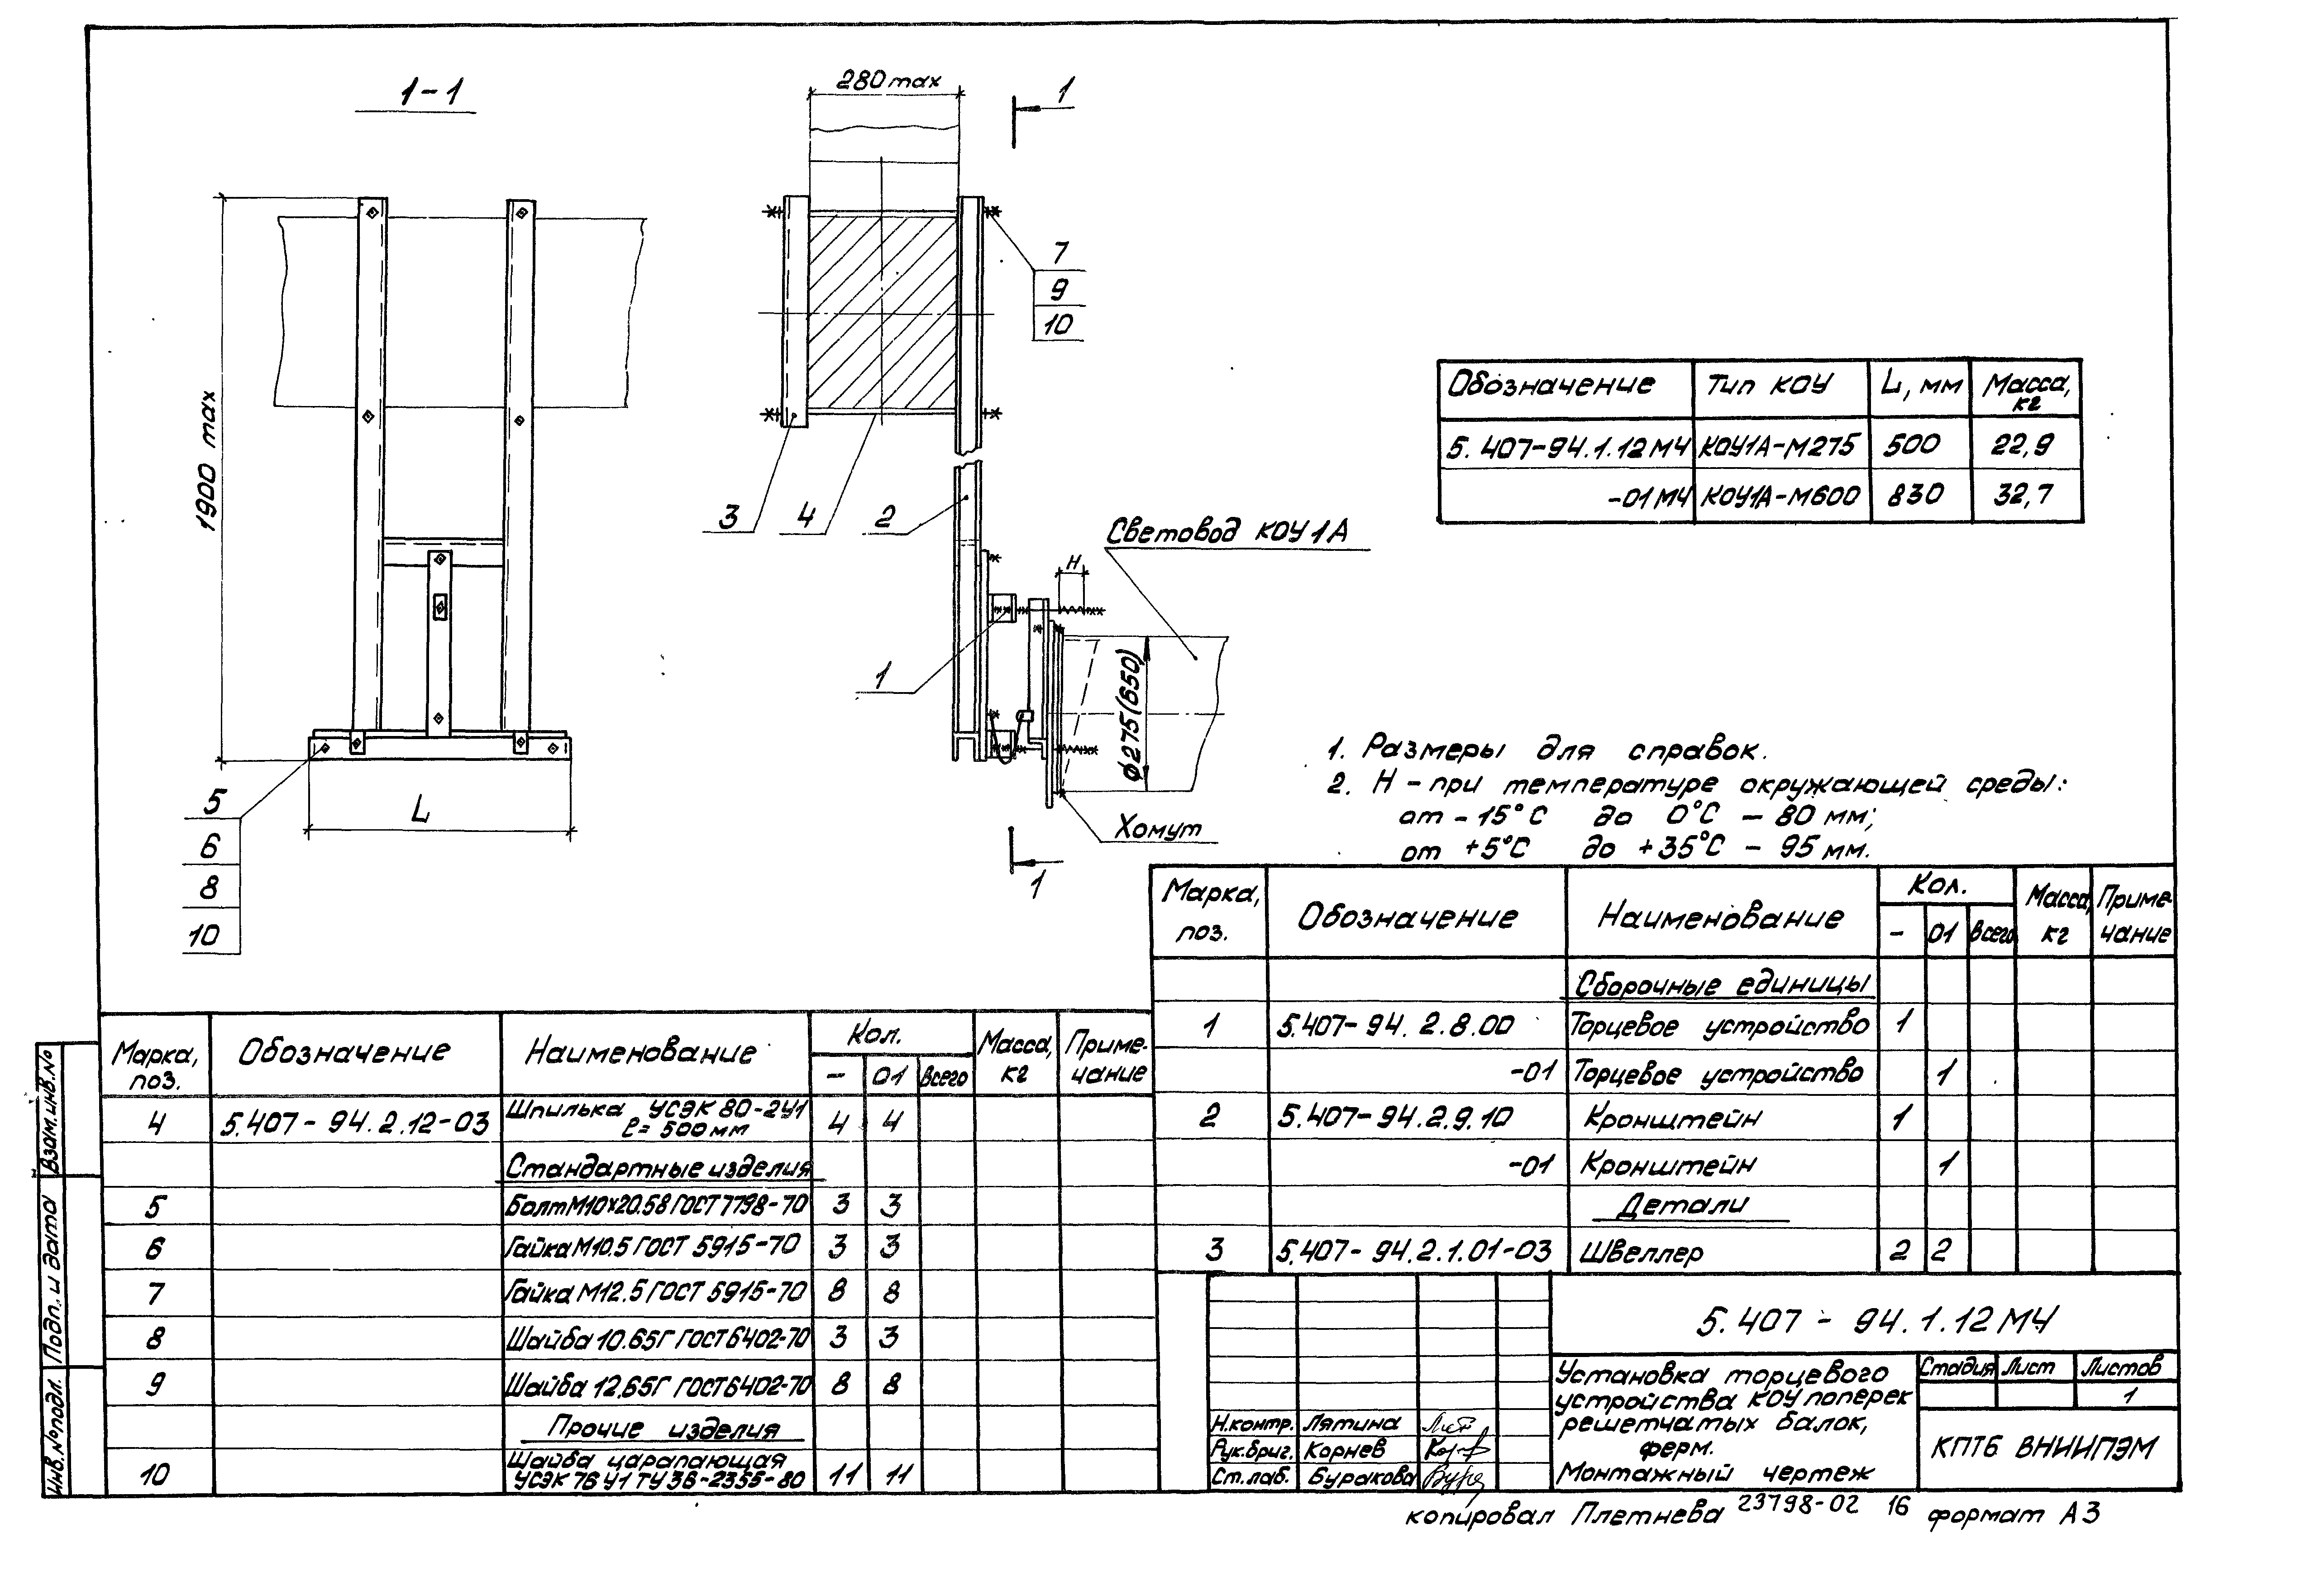 1-1
280 max
1
1900 max
7
9
10
3
4
2
Световод КОУ 1А
H
1
ϕ275(650)
Хомут
1
5
6
8
10
L
Обозначение Тип КОУ L, мм Масса, кг
5.407-94.1.12 МЧ КОУ1А-М275 500 22,9
-01 МЧ КОУ1А-М600 830 32,7
1. Размеры для справок.
2. H - при температуре окружающей среды:
от -15°С до 0°С - 80 мм;
от +5°С до +35°С - 95 мм.
Марка, поз. Обозначение Наименование Кол. Масса, кг Примечание
- 01 всего
Сборочные единицы
1 5.407-94.2.8.00 Торцевое устройство 1
-01 Торцевое устройство 1
2 5.407-94.2.9.10 Кронштейн 1
-01 Кронштейн 1
Детали
3 5.407-94.2.1.01-03 Швеллер 2 2
Марка, поз. Обозначение Наименование Кол. Масса, кг Примечание
- 01 всего
4 5.407-94.2.12-03 Шпилька УСЭК 80-2У1 4 4
ℓ= 500 мм
Стандартные изделия
5 Болт М10х20.58 ГОСТ 7798-70 3 3
6 Гайка М10.5 ГОСТ 5915-70 3 3
7 Гайка М12.5 ГОСТ 5915-70 8 8
8 Шайба 10.65Г ГОСТ 6402-70 3 3
9 Шайба 12.65Г ГОСТ 6402-70 8 8
Прочие изделия
10 Шайба царапающая 11 11
УСЭК 76 У1 ТУ 36-2355-80
5.407-94.1.12 МЧ
Установка торцевого
устройства КОУ поперек
решетчатых балок,
ферм.
Монтажный чертеж
Стадия Лист Листов
1
КПТБ ВНИИПЭМ
Н.контр. Лятина
Рук.бриг. Корнев
Ст.лаб. Буракова
Взам.инв.№
Подп. и дата
Инв.№подл.
копировал Плетнева 23798-02 16 формат А3